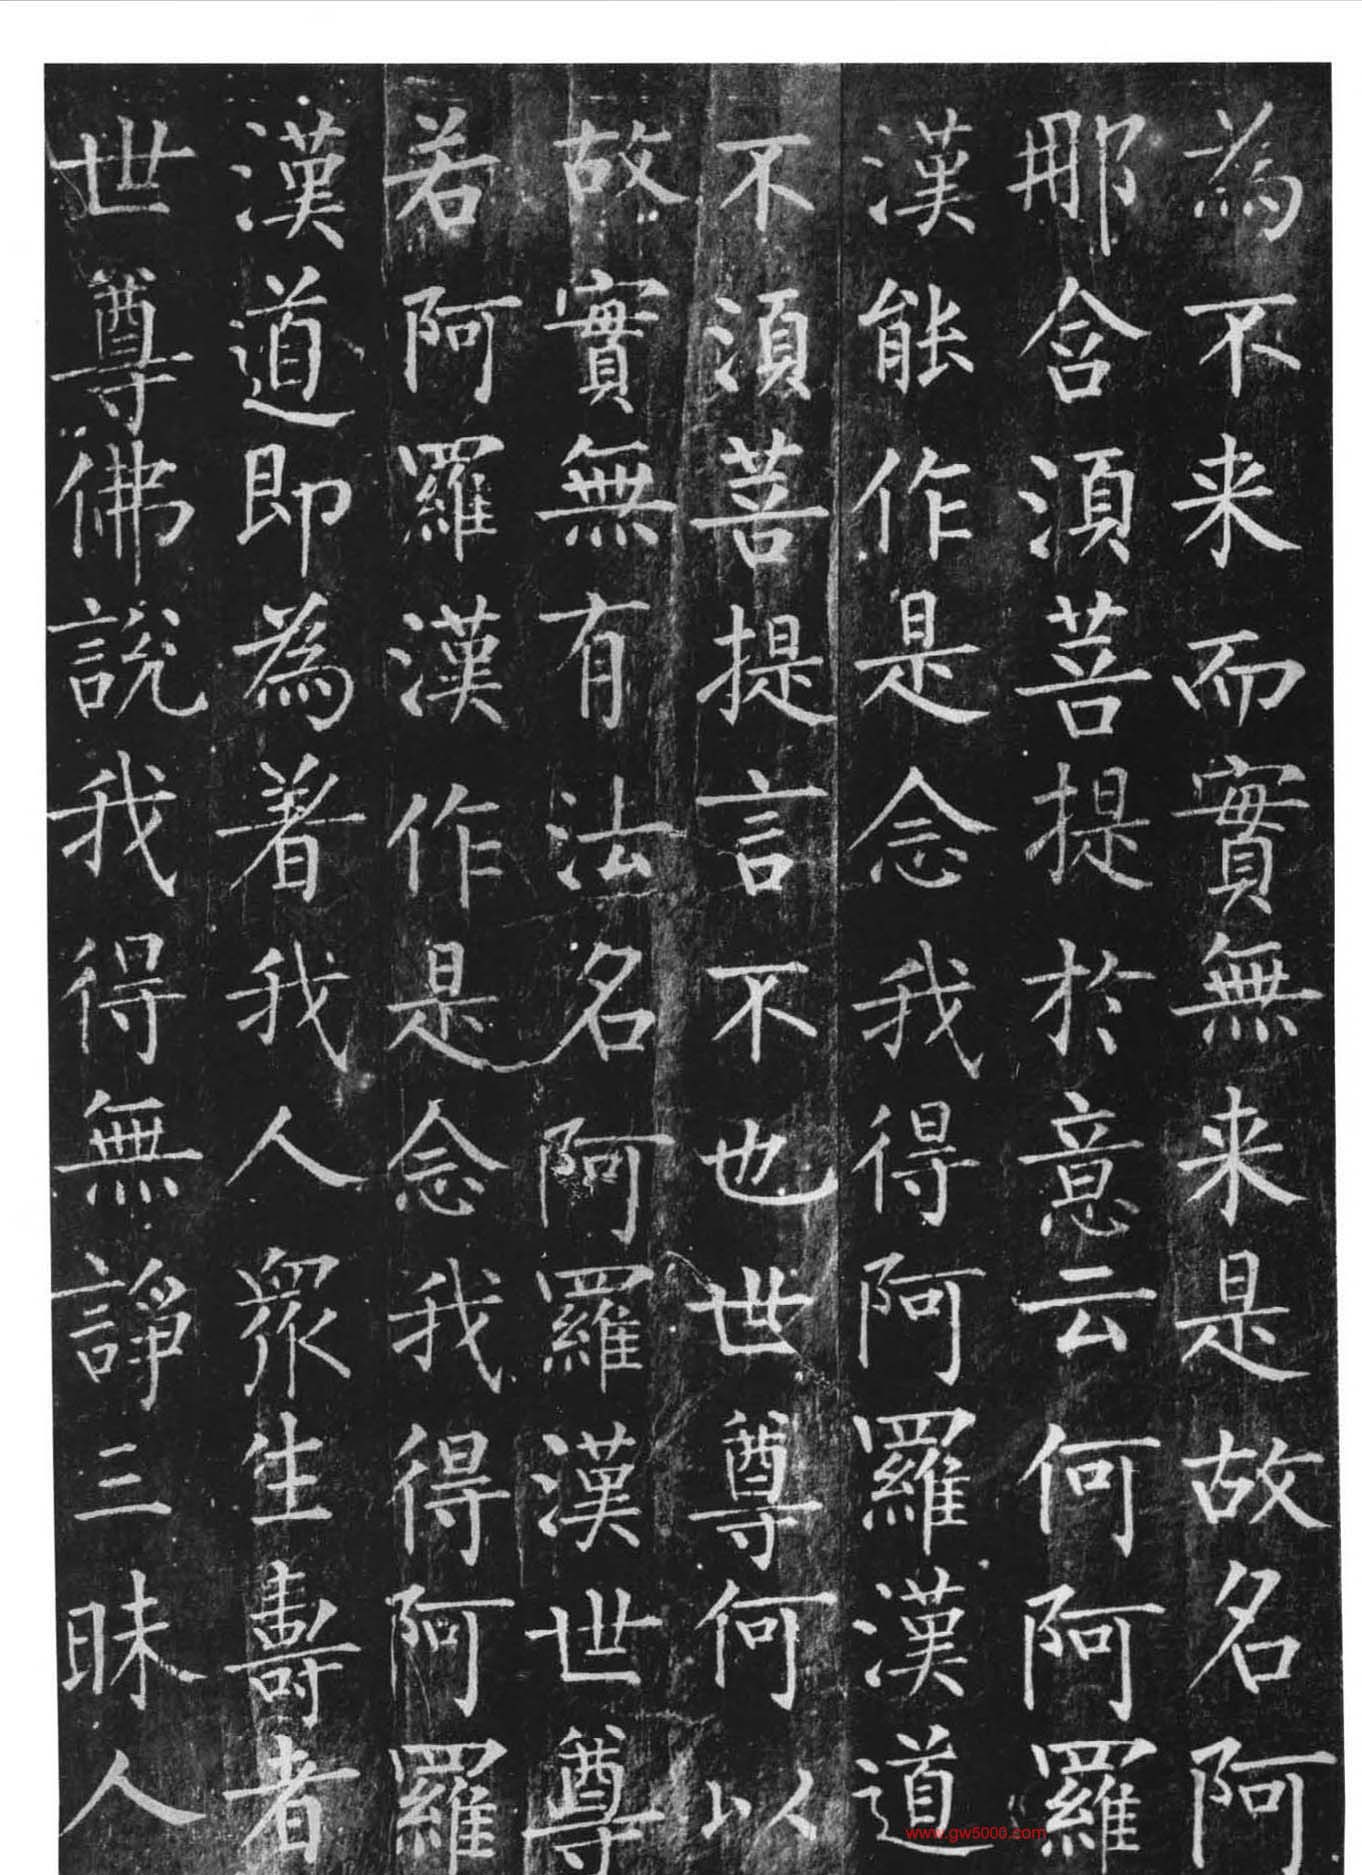 為不来而實無来是故名阿
那含須菩提於意云何阿羅
漢能作是念我得阿羅漢道
不須菩提言不也世尊何以
故實無有法名阿羅漢世尊
若阿羅漢作是念我得阿羅
漢道即為著我人眾生壽者
世尊佛說我得無諍三昧人
www.gw5000.com